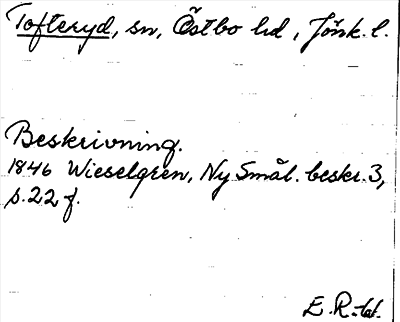 Tofteryd, sn, Östbo hd, Jönk. l.
Beskrivning.
1846 Wieselgren, Ny Smål. beskr. 3,
s. 22 f.
E. R-tet.